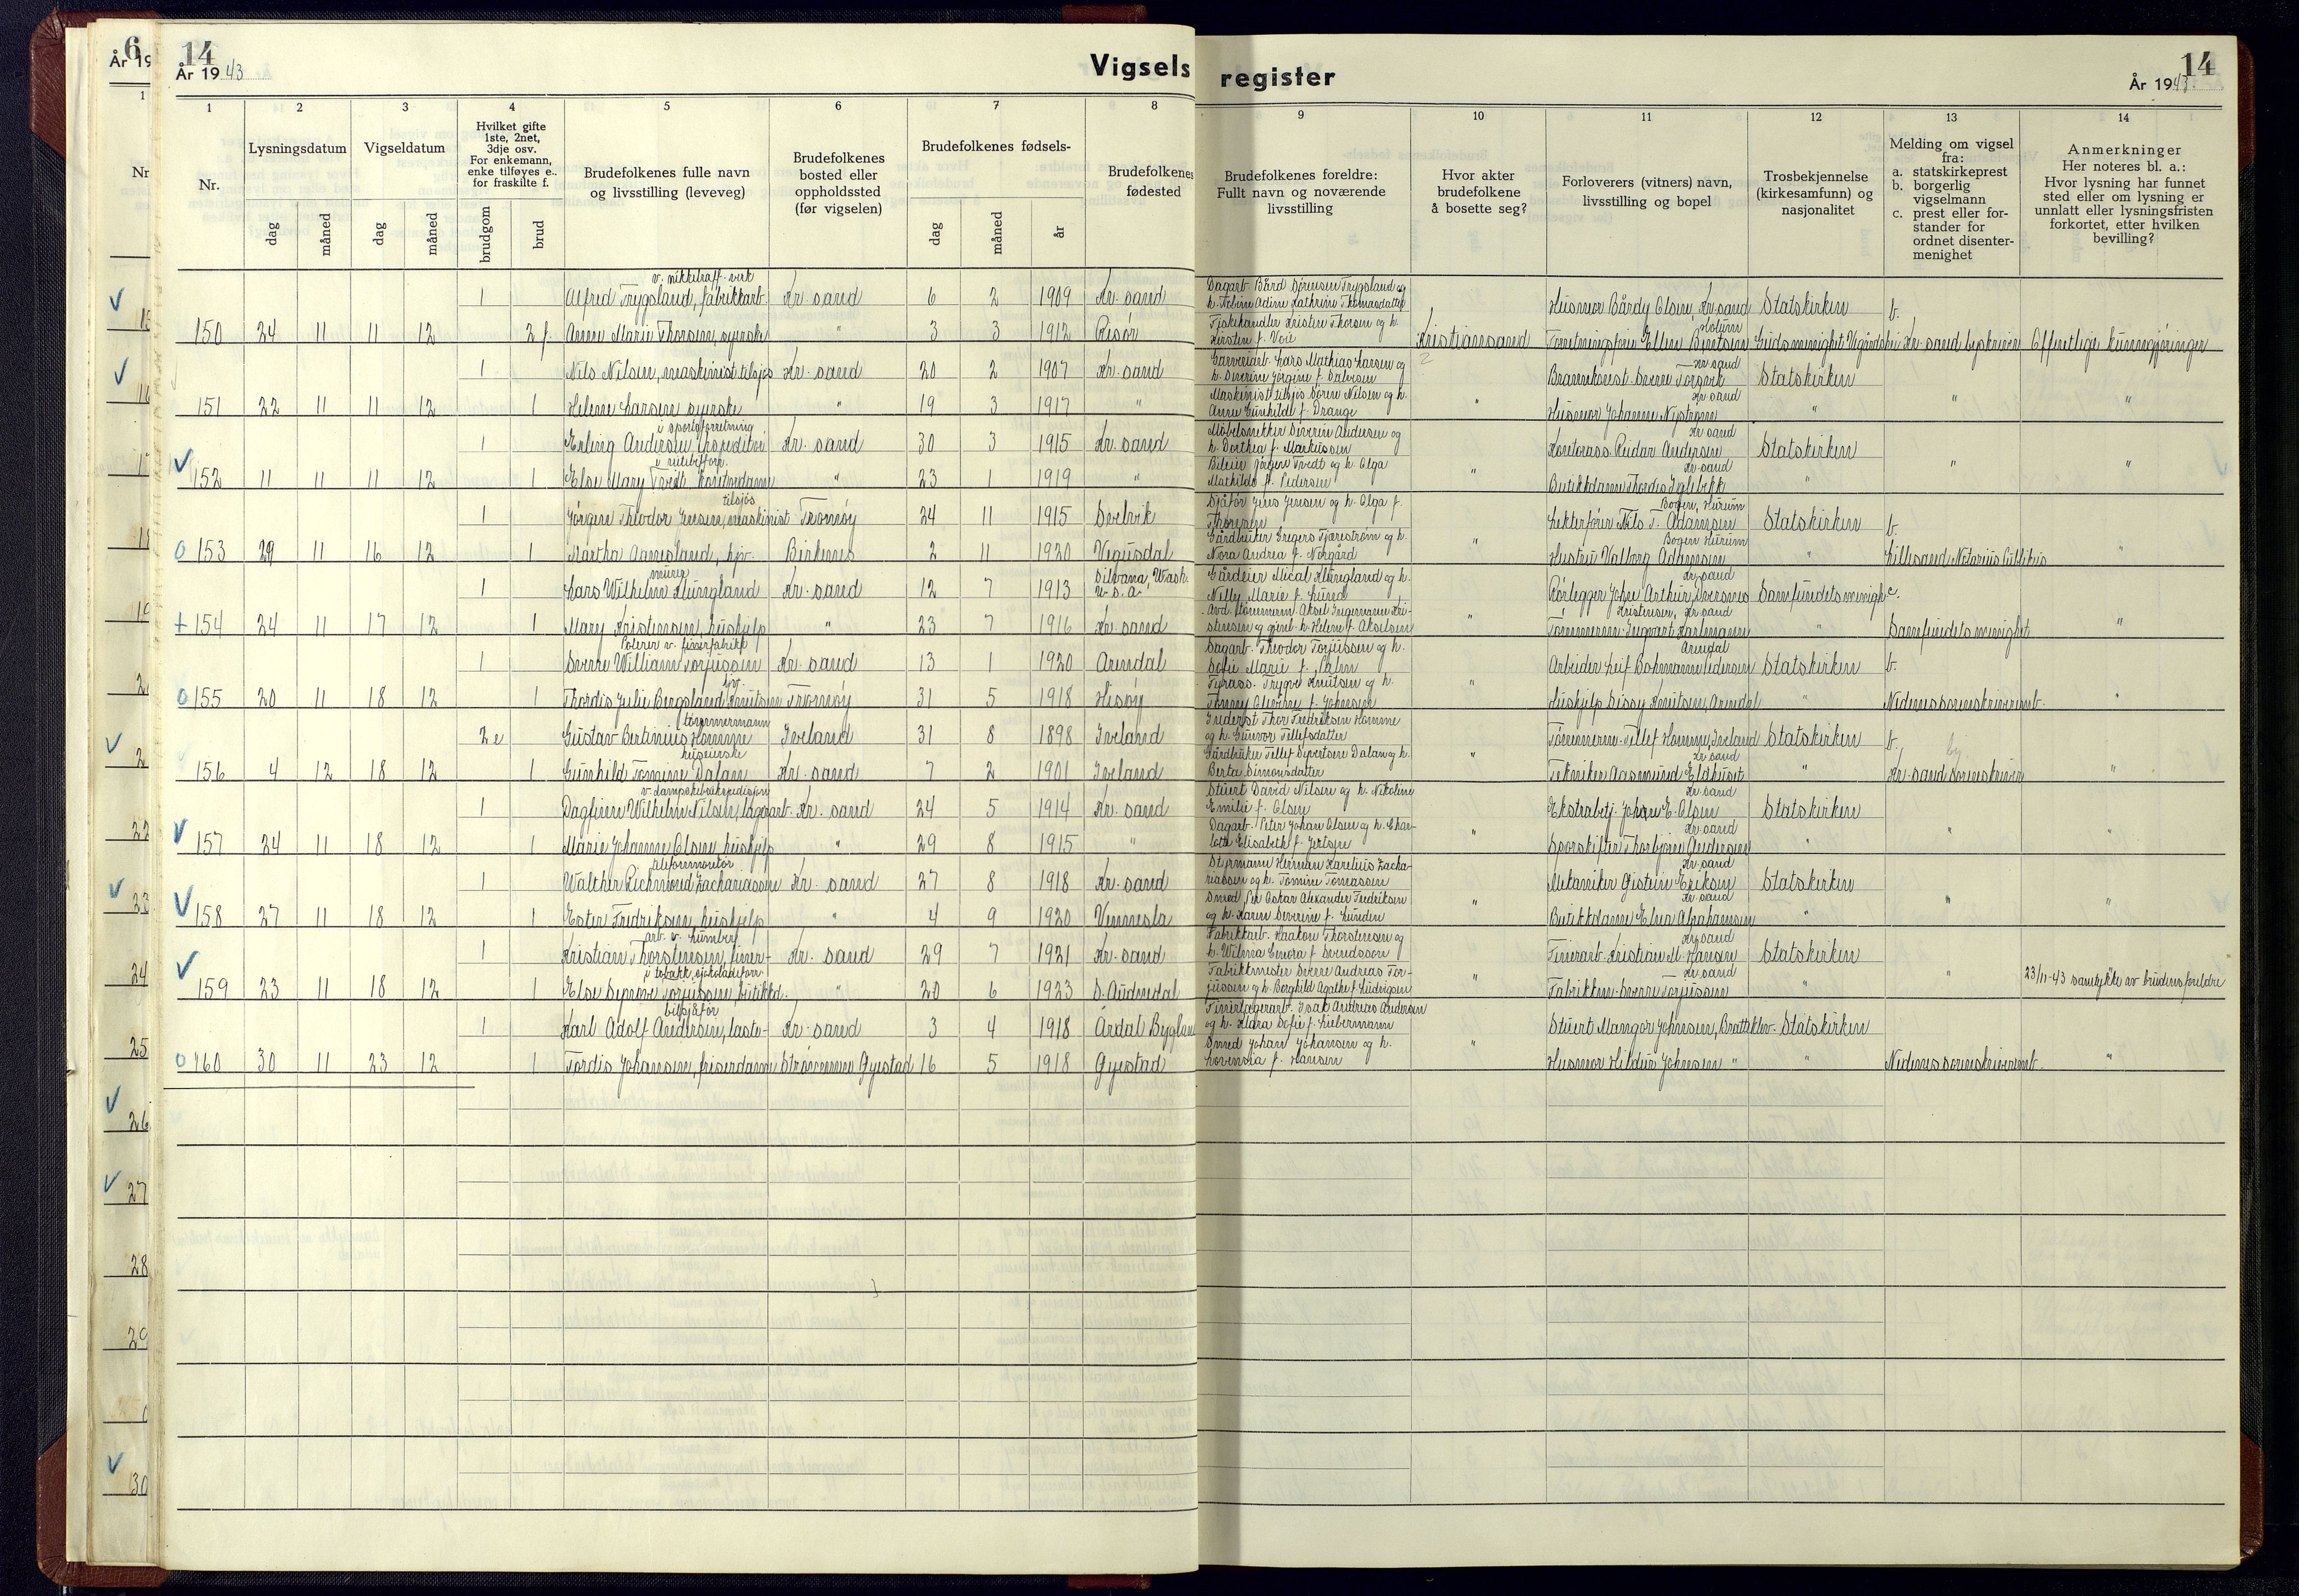 6
14
År 19
År 1943
Vigsels register
14
År 1943
1
1 2 3 4 5 6 7 8 9 10 11 12 13 14
Nr
Nr.
Lysningsdatum
Vigseldatum
Hvilket gifte
1ste, 2net,
3dje osv.
For enkemann,
enke tilføyes e..
for fraskilte f.
Brudefolkenes fulle navn
og livsstilling (leveveg)
Brudefolkenes
bosted eller
oppholdssted
(før vigselen)
Brudefolkenes fødsels-
Brudefolkenes
fødested
Brudefolkenes foreldre:
Fullt navn og noværende
livsstilling
Hvor akter
brudefolkene
å bosette seg?
Forloverers (vitners) navn,
livsstilling og bopel
Trosbekjennelse
(kirkesamfunn) og
nasjonalitet
Melding om vigsel
fra:
a. statskirkeprest
b. borgerlig
vigselmann
c. prest eller for-
stander for
ordnet disenter-
menighet
Anmerkninger
Her noteres bl. a.:
Hvor lysning har funnet
sted eller om lysning er
unnlatt eller lysningsfristen
forkortet, etter hvilken
bevilling?
dag måned dag måned brudgom brud dag måned år
v. nikkelraff. verk
1 Alfred Trygsland, fabrikkarb. Kr. sand 6 2 1909 Kr. sand
Dagarb. Bård Sørensen Trygsland og
h. Tobine Adine Kathrine Thomasdatter
Husmor Bårdy Olsen, Kr. sand Statskirken b.
150 24 11 11 12 2 f. Anne Marie Thorsen, syerske " 3 3 1912 Risør
Fiskehandler Kristen Thorsen og h.
Kirsten f. Voie
Kristiansand
Holum
Forretningsfører Ellen Berntsen Kr. sand byskriver Offentlige kunngjøringer
1 Nils Nilsen, maskinist tilsjøs Kr. sand 20 2 1907 Kr. sand
Garveriarb. Lars Mathias Larsen og
h. Severine Jorgine f. Salvesen
Kr. sand
Brannkonst. Sverre Torsvik Statskirken
151 22 11 11 12 1 Helene Larsen syerske " 19 3 1917 "
Maskinist tilsjøs Sören Nilsen og h.
Anne Gunhilde f. Drange
" Kr. sand
Husmor Johanne Nystrøm " " "
i sportsforretning
1 Erling Andersen, ekspeditør Kr. sand 30 3 1915 Kr. sand
Møbelsnekker Severin Andersen og
h. Dorthea f. Markussen
Kr. sand
Kontorass. Reidar Andersen Statskirken
152 11 11 11 12 1 Else Mary Tvedt, kontordame " 23 1 1919 "
Bileier Jörgen Tvedt og h. Olga
Mathilde f. Pedersen
" Kr. sand
Butikkdame Thordis Igletjekk " " "
tilsjøs
1 Jörgen Theodor Jensen, maskinist Tromøy 24 11 1915 Svelvik
Sjåfør Jens Jensen og h. Olga f.
Thoresen
Bogen, Hurum
Lekterfører Nils T. Adamsen Statskirken b.
153 29 11 16 12 1 Martha Aamesland, hjv. Birkenes 2 11 1920 Vegusdal
Gårdbruker Gregers Tjæreström og h.
Nora Andrea f. Norgård
" Bogen Hurum
Hustru Valborg Adamsen " Lillesand Notarius Publikus "
murer
1 Lars Wilhelm Klungland Kr. sand 12 7 1913 Silvana, Wash.
U.S.A.
Gårdeier Mical Klungland og h.
Nelly Marie f. Lund
Kr. sand
Rörlegger John Arthur Syversnes Samfundets menigh. c.
154 24 11 17 12 1 Mary Kristensen, hushjelp " 23 7 1916 Kr. sand
Avd. tömmerm. Aksel Ingemann Kri-
stensen og gjenl. h. Helene f. Akselsen
" Kristensen, Kr. sand
Tömmerm. Ingvart Karlmann " Samfundets menighet "
Polerer v. finerfabrikk
1 Sverre William Torjussen Kr. sand 13 1 1920 Arendal
Dagarb. Theodor Torjussen og h.
Sofie Marie f. Palm
Arendal
Arbeider Leif Bohmann Pedersen Statskirken b.
hjv.
155 20 11 18 12 1 Thordis Julie Bergsland Knutsen Tromøy 31 5 1918 Hisøy
Fyrass. Trygve Knutsen og h.
Fanny Olevine f. Johnsen
" Hushjelp Sissy Knutsen, Arendal " Nedenes sorenskriveremb. "
tömmermann
1 2 e Gustav Bertinius Homme Iveland 31 8 1898 Iveland
Inderst Thor Fredriksen Homme
og h. Gunvor Tellefsdatter
Tömmerm. Tellef Homme, Iveland Statskirken b.
husjenske
156 4 12 18 12 1 Gunhild Tomine Dalan Kr. sand 7 2 1901 Iveland
Gårdbruker Tellef Syvertsen Dalan og h.
Berta Simonsdatter
Kr. sand
Tekniker Aasmund Eldhuset " Kr. sand sorenskriver "
v. dampskibsekspedisjon
1 Dagfinn Wilhelm Nilsen, lagerarb. Kr. sand 24 5 1914 Kr. sand
Stuert David Nilsen og h. Nikoline
Emilie f. Olsen
Kr. sand
Ekstrabetj. Johan E. Olsen Statskirken
157 24 11 18 12 1 Marie Johanne Olsen hushjelp " 29 8 1915 "
Dagarb. Peter Johan Olsen og h. Char-
lotte Elisabeth f. Jertsen
" Kr. sand
Sporskifter Thorbjörn Andersen " " "
telefonmontör
1 Walther Richmond Zachariassen Kr. sand 27 8 1918 Kr. sand
Styrmann Herman Karelius Zacha-
riassen og h. Tomine Tomassen
Kr. sand
Mekaniker Øistein Eriksen Statskirken
158 27 11 18 12 1 Ester Fredriksen, hushjelp " 4 9 1920 Vennesla
Smed Per Oskar Alexander Fredriksen
og h. Karen Severine f. Lunden
" Kr. sand
Butikkdame Elna Abrahamsen " " "
arb. v. Lumber
1 Kristian Thorstensen, finer- Kr. sand 29 7 1921 Kr. sand
Fabrikkarb. Haakon Thorstensen og
h. Wilma Emora f. Svendsson
Kr. sand
Finerarb. Kristian M. Hansen Statskirken
i tobakk, sjokoladeforr.
159 23 11 18 12 1 Else Synnøve Torjussen, butikkd. " 20 6 1923 S. Audnedal
Fabrikkmester Sverre Andreas Tor-
jussen og h. Borghild Agathe f. Ludvigsen
" Kr. sand
Fabrikkm. Sverre Torjussen " " 23/11-43 samtykke av brudens foreldre
bilsjåför
1 Karl Adolf Andersen, laste- Kr. sand 3 4 1918 Årdal Bygland
Finerlagerarb. Isak Andreas Andersen
og h. Klara Sofie f. Liebermann
Stuert Mangor Johnsen, Bratteklev. Statskirken
160 30 11 23 12 1 Tordis Johansen, friserdame Strømmen Gjestad 16 5 1918 Gjestad
Smed Johan Johansen og h.
Lovensia f. Hansen
" Husmor Hildur Johnsen " " Nedenes sorenskriveremb. "
22
23
24
25
26
27
28
29
30